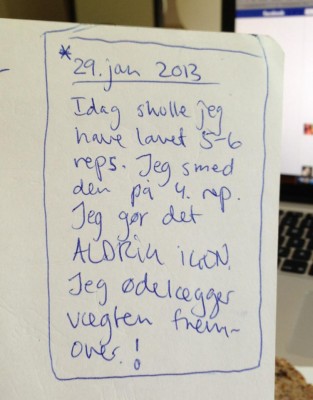 *
29. jan 2013
Idag skulle jeg
have lavet 5-6
reps. Jeg smed
den på 4. rep.
Jeg gør det
ALDRIG IGEN.
Jeg ødelægger
vægten frem-
over!
facebook